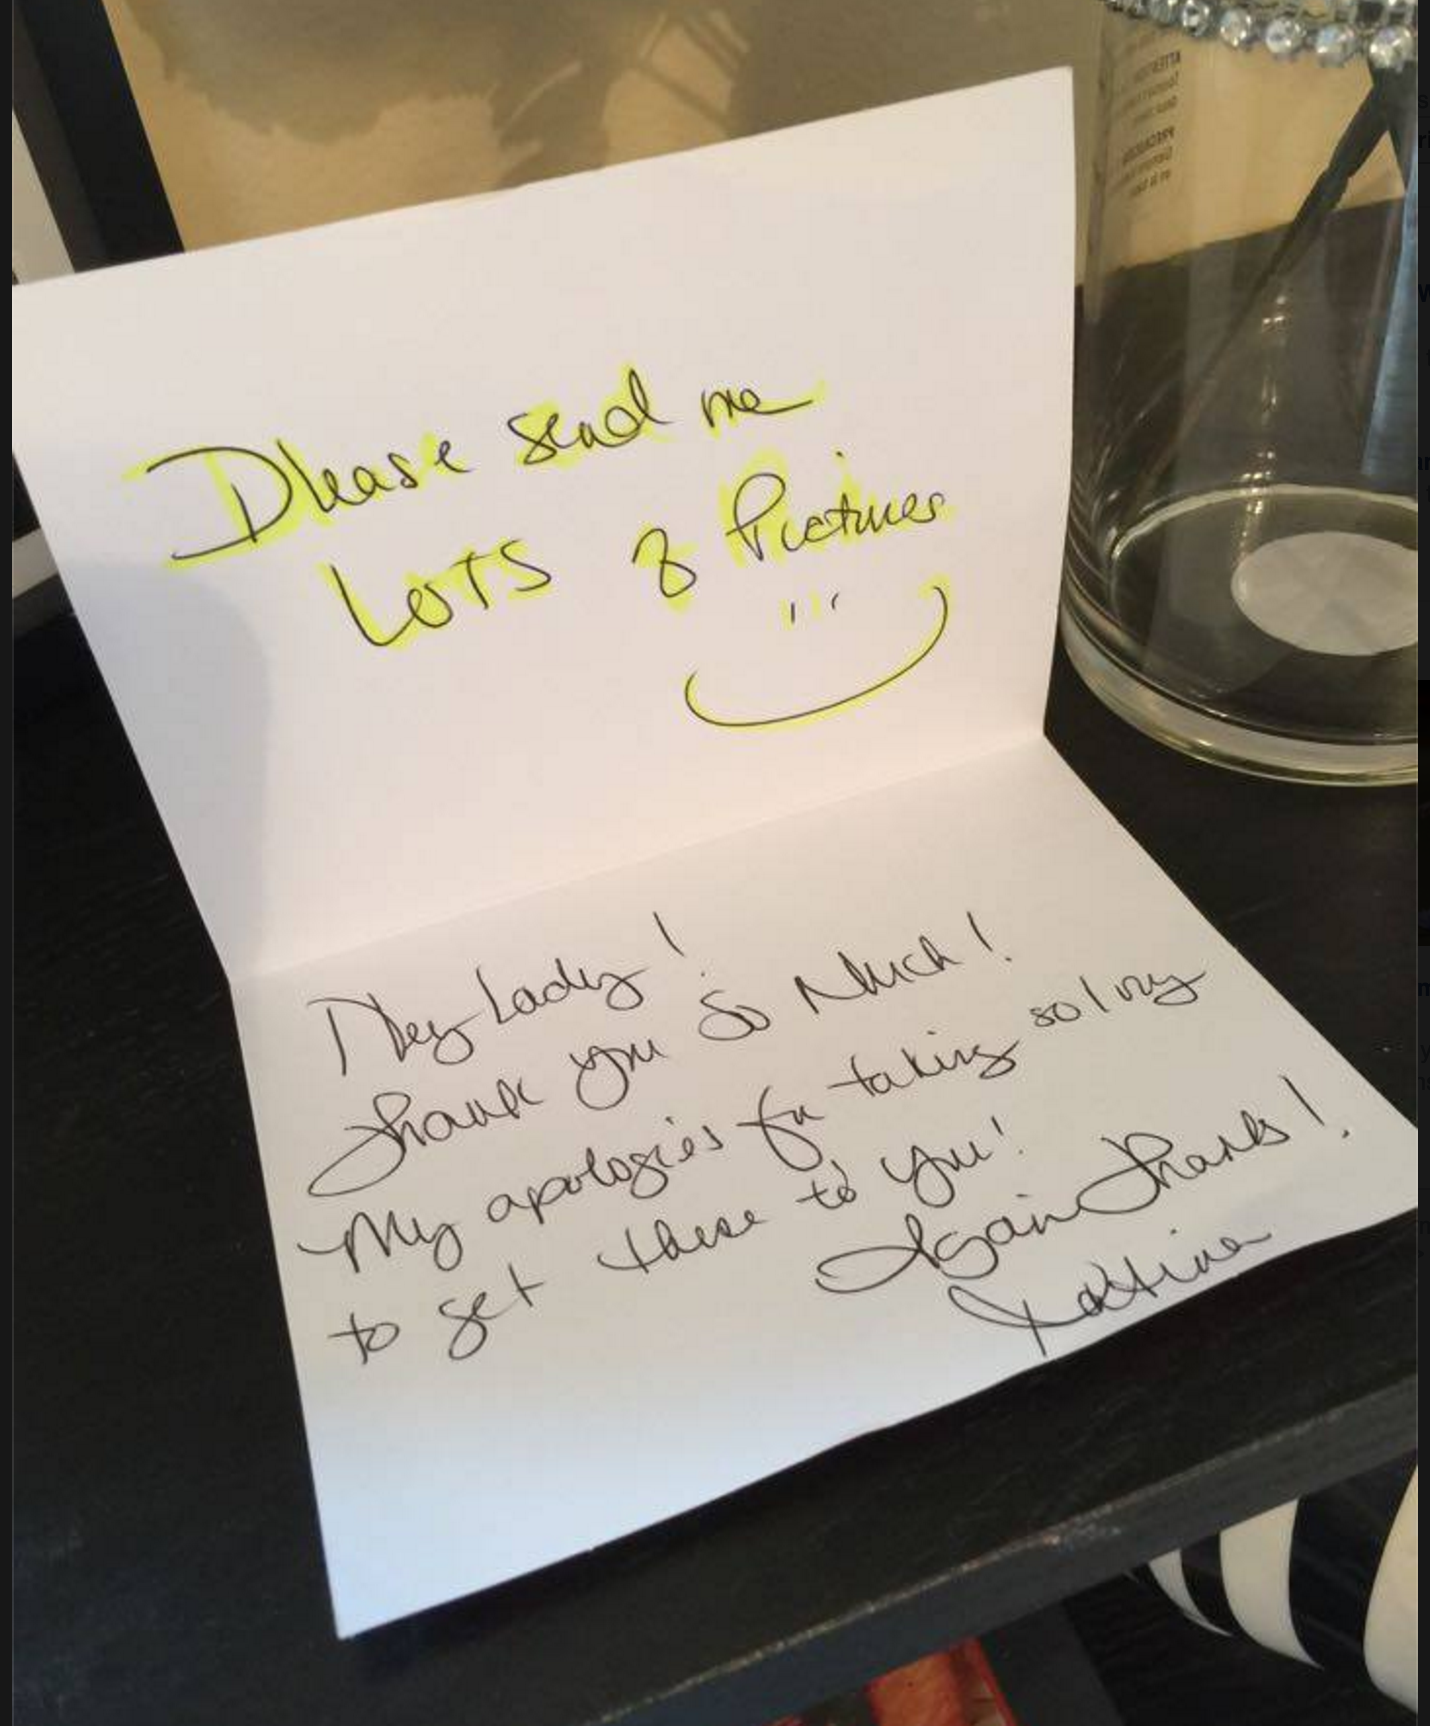 Please send me
LOTS of Pictures
Hey Lady!
Thank you So Much!
My apologies for taking so long
to get these to you!
Again Thanks!
Katrina
ATTENTION